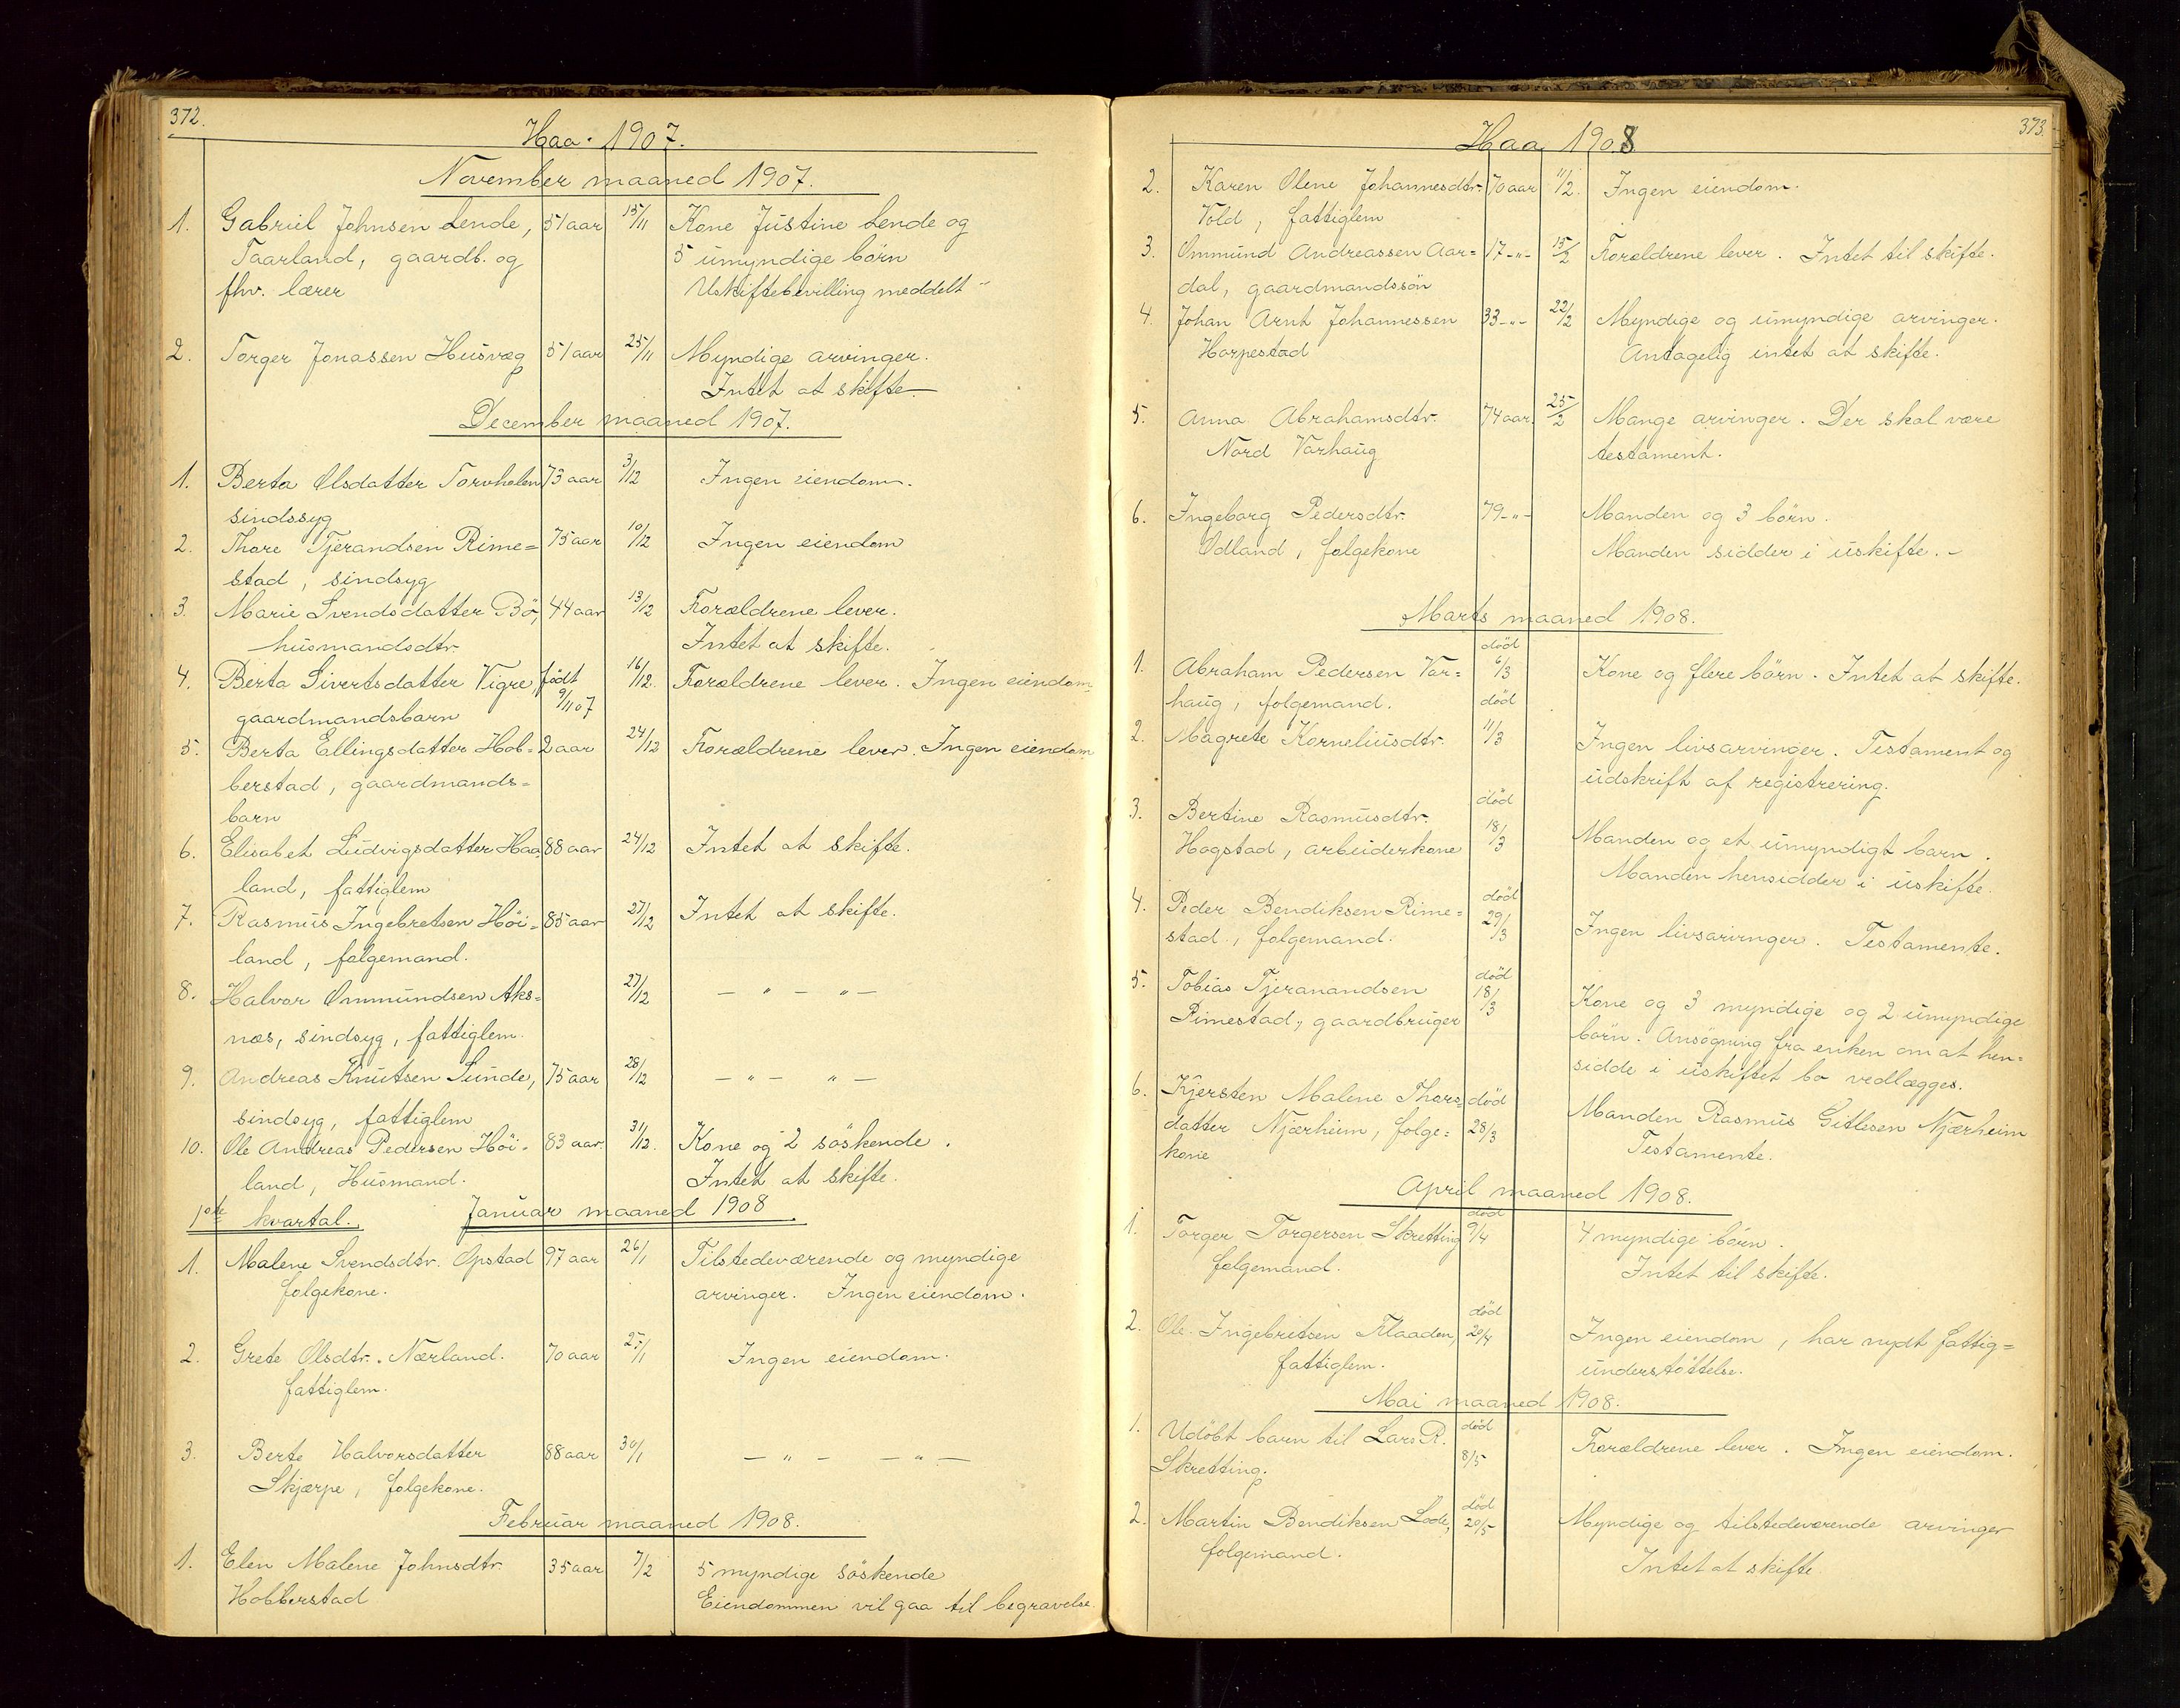 372.
Haa. 1907.
November maaned 1907.
1. Gabriel Johnsen Lende, 51 aar 15/11 Kone Justine Lende og
Taarland, gaardb. og 5 umyndige börn
fhv. lærer Uskiftebevilling meddelt
2. Torger Jonassen Husvæg 51 aar 25/11 Myndige arvinger.
Intet at skifte.
December maaned 1907.
1. Berta Olsdatter Torvholen 73 aar 3/12 Ingen eiendom.
sindssyg
2. Thore Tjerandsen Rime= 75 aar 10/12 Ingen eiendom
stad, sindsyg
3. Marie Svendsdatter Bö, 44 aar 13/12 Forældrene lever.
husmandsdtr. Intet at skifte.
4. Berta Sivertsdatter Vigre, født 16/12. Forældrene lever. Ingen eiendom.
gaardmandsbarn 9/11 07
5. Berta Ellingsdatter Hob= 2 aar 24/12 Forældrene lever. Ingen eiendom
berstad, gaardmands=
barn
6. Elisabet Ludvigsdatter Haa 88 aar 24/12 Intet at skifte.
land, fattiglem
7. Rasmus Ingebretsen Höi= 85 aar 27/12 Intet at skifte.
land, folgemand.
8. Halvor Ommundsen Aks= 27/12 — " — " —
nes, sindsyg, fattiglem.
9. Andreas Knutsen Sunde, 75 aar 28/12 — " — " —
sindsyg, fattiglem
10. Ole Andreas Pedersen Höi= 83 aar 31/12. Kone og 2 söskende.
land, Husmand. Intet at skifte.
1ste kvartal. Januar maaned 1908
1. Malene Svendsdtr. Opstad 97 aar 26/1 Tilstedeværende og myndige
folgekone. arvinger. Ingen eiendom.
2. Grete Olsdtr. Nærland. 70 aar 27/1 Ingen eiendom.
fattiglem.
3. Berte Halvorsdatter 88 aar 30/1 — " — — " —
Skjærpe, folgekone.
Februar maaned 1908.
1. Elen Malene Johnsdtr. 35 aar 7/2 5 myndige söskende
Hobberstad Eiendommen vil gaa til begravelse.
373.
Haa 1908
2. Karen Olene Johannesdtr. 70 aar 11/2. Ingen eiendom.
Vold, fattiglem
3. Ommund Andreassen Aar= 17 -"- 15/2 Forældrene lever. Intet til skifte.
dal, gaardmandssön
4. Johan Arnt Johannessen 33 -"- 22/2 Myndige og umyndige arvinger.
Harpestad Antagelig intet at skifte.
5. Anna Abrahamsdtr. 74 aar. 25/2 Mange arvinger. Der skal være
Nord Varhaug testament.
6. Ingeborg Pedersdtr. 79 -"- Manden og 3 börn.
Ödland, folgekone Manden sidder i uskifte.
Marts maaned 1908.
død
1. Abraham Pedersen Var= 6/3 Kone og flere börn. Intet at skifte.
haug, folgemand. død
2. Magrete Korneliusdtr. 11/3 Ingen livsarvinger. Testament og
udskrift af registrering.
død
3. Bertine Rasmusdtr. 18/3 Manden og et umyndigt barn.
Hogstad, arbeiderkone Manden hensidder i uskifte.
død
4. Peder Bendiksen Rime= 29/3 Ingen livsarvinger. Testamente.
stad, folgemand.
død
5. Tobias Tjeranandsen 18/3 Kone og 3 myndige og 2 umyndige
Rimestad, gaardbruger börn. Ansögning fra enken om at hen=
sidde i uskiftet bo vedlægges.
6. Kjersten Malene Thors= død Manden Rasmus Gitlesen Njærheim
datter Njærheim, folge= 28/3 Testamente.
kone
April maaned 1908.
død
1. Torger Torgersen Skretting 9/4 4 myndige börn.
folgemand. Intet til skifte.
død
2. Ole Ingebritsen Flaaden, 20/4 Ingen eiendom, har nydt fattig=
fattiglem. understöttelse.
Mai maaned 1908.
1. Udöbt barn til Lars R. død Forældrene lever. Ingen eiendom.
Skretting. 8/5
død
2. Martin Bendiksen Lode, 20/5 Myndige og tilstedeværende arvinger
folgemand. Intet at skifte